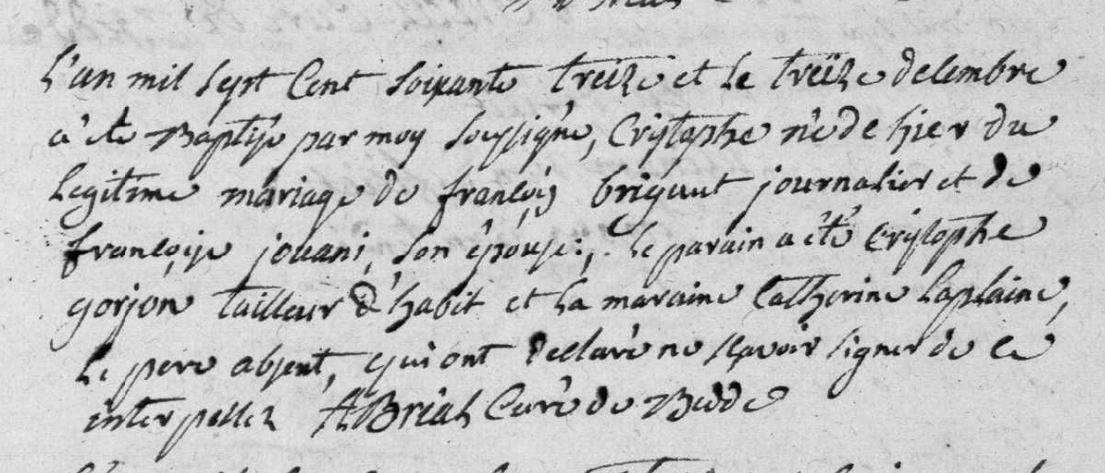 L'an mil sept Cent soixante treize et le treïze decembre
a été Baptisé par moy soussigné, Cristophe né de hier du
legitime mariage de françois brigaut journalier et de
françoise jouani, son épouse:, le parain a été Cristophe
gorjon tailleur d'habit et la maraine Catherine Laplaine,
le pere absent, qui ont declaré ne sçavoir signer de ce
interpellez ABrial Curé de Bedde